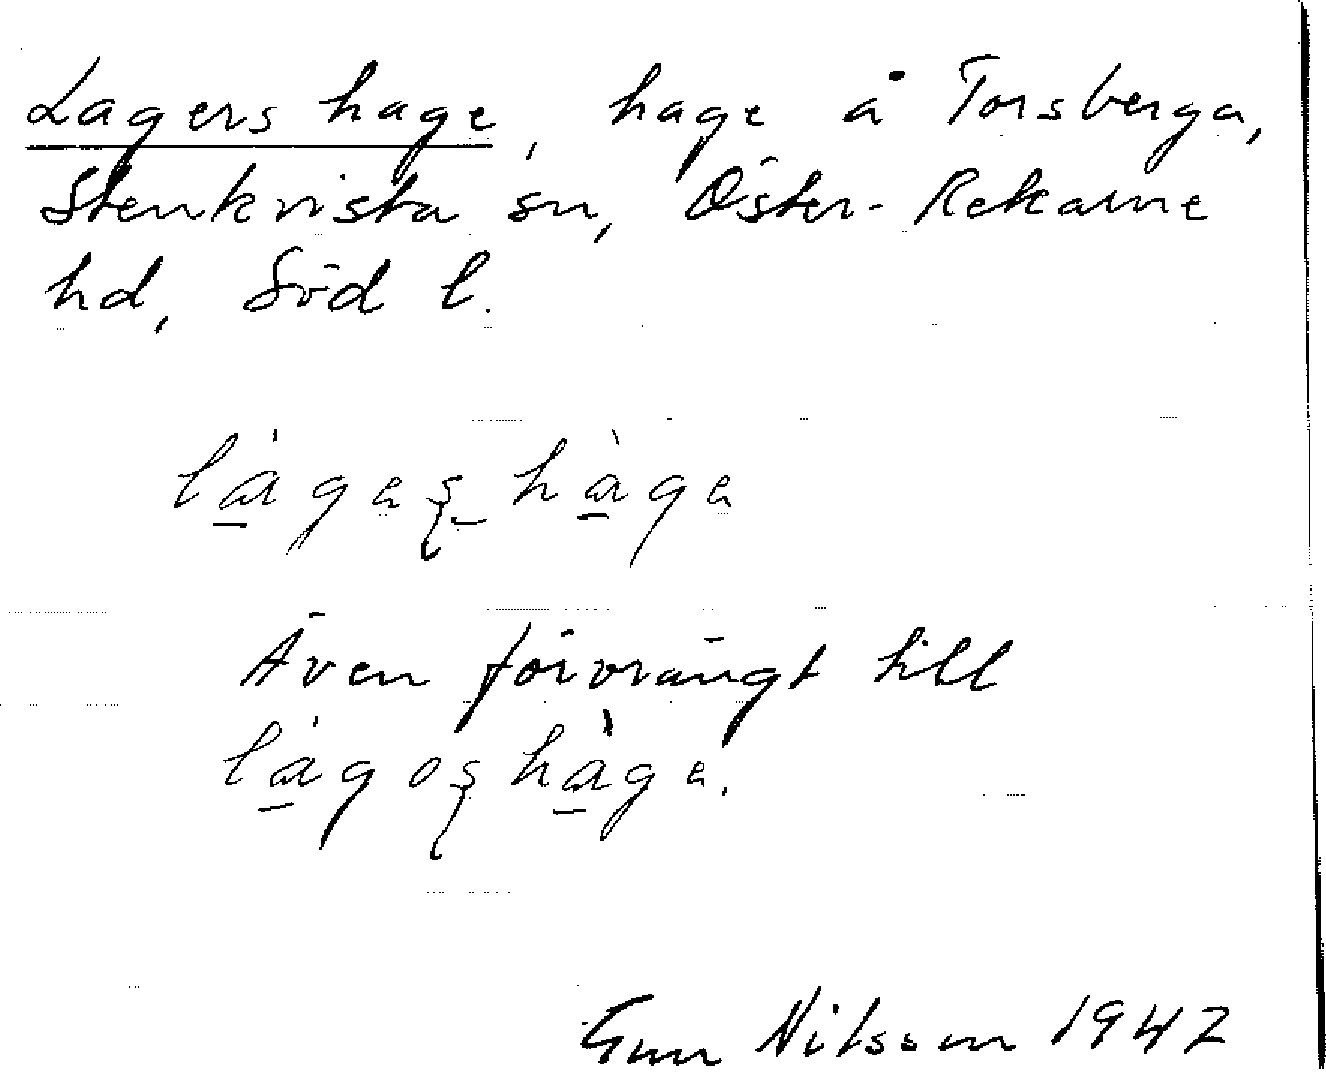 Lagers hage, hage å Torsberga,
Stenkvista sn, Öster-Rekarne
hd, Söd l.
là̱gaș hà̱ga
Även förvrängt till
là̱goșhà̱ga.
Gun Nilsson 1947